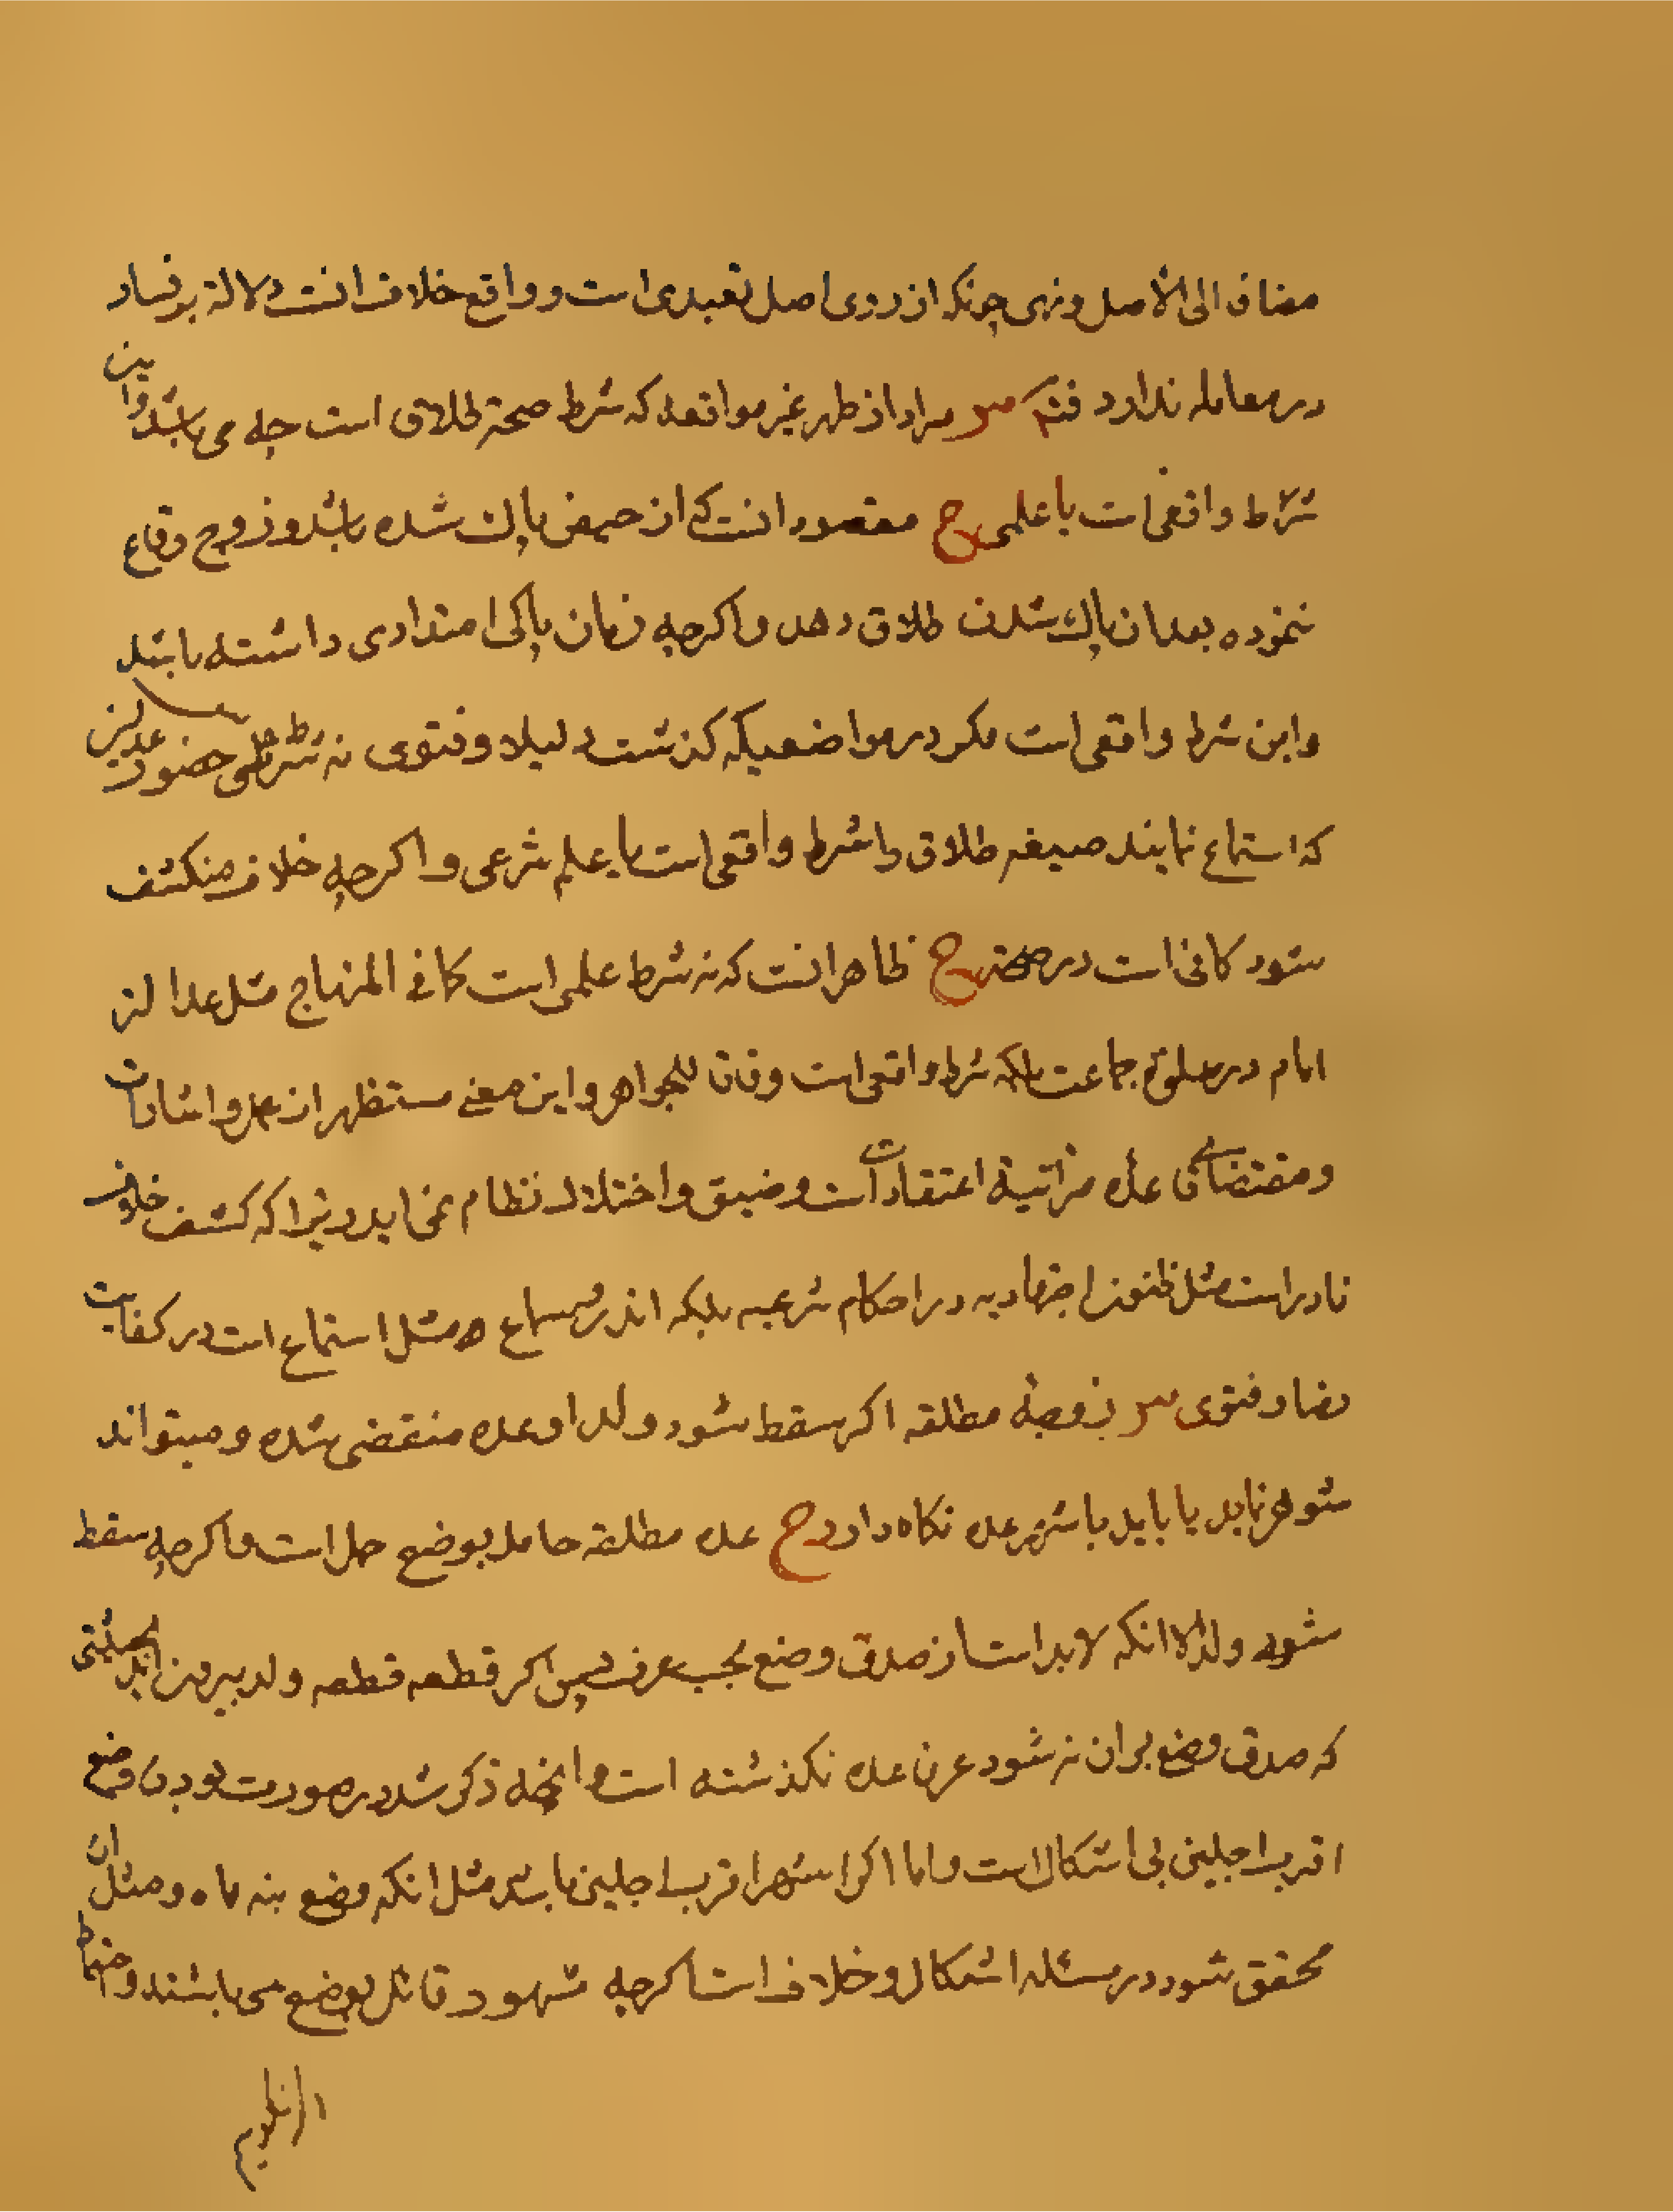 مضاف الی الاصل و نهی چونکه از روی اصل تعبدی است و واقع خلاف انست دلالة بر فساد
در معامله ندارد فتم س مراد از طهر غیر مواقعه که شرط صحة طلاق است چه می باشد و این
شرط واقعی است یا علمی ج مقصود انست که از حیض پاک شده باشد و زوج وقاع
ننموده بعد ان پاک شدن طلاق دهد و اکرچه زمان پاکی امتدادی داشته باشد
و این شرط واقعی است مکر در مواضعیکه کذشت دلیلا و فتوی نه شرط علمی حضور عدلین
که استماع نمایند صیغه طلاق را شرط واقعی است یا علم شرعی و اکرچه خلاف منکشف
شود کافی است در صحة ج ظاهر انست که نه شرط علمی است کما فی المنهاج مثل عدالة
امام در صلوة جماعت بلکه شرط واقعی است وفاقا للجواهر و این معنی مستظهر از عمل و اشارات
و مقتضای مراتبة اعتقادات است و ضیق و اختلال نظام نمی اید زیرا که کشف خلاف
نادر است مثل ظنون اجتهادیه در احکام شرعیه بلکه سماع مثل استماع است در کفایت
رضا و فتوی س زوجهٔ مطلقه اکر سقط شود ولد او عده منقضی شده و میتواند
شوهر نماید یا باید باشهر عده نکاه دارد ج عده مطلقه حامل بوضع حمل است و اکرچه سقط
شود ولد الا انکه لابد است از صدق وضع بحسب عرف پس اکر قطعه قطعه ولد بیرون اید بحیثیتی
که صدق وضع بر ان نه شود عرفا عده نکذشته است و انچه ذکر شد در صورت بودن وضع
اقرب اجلین بی اشکال است و اما اکر اشهر اقرب اجلین باشد مثل انکه وضع بنه ماه و مثل ان
محقق شود در مسئله اشکال و خلاف است اکرچه مشهور قائل بوضع می باشند و احتیاط